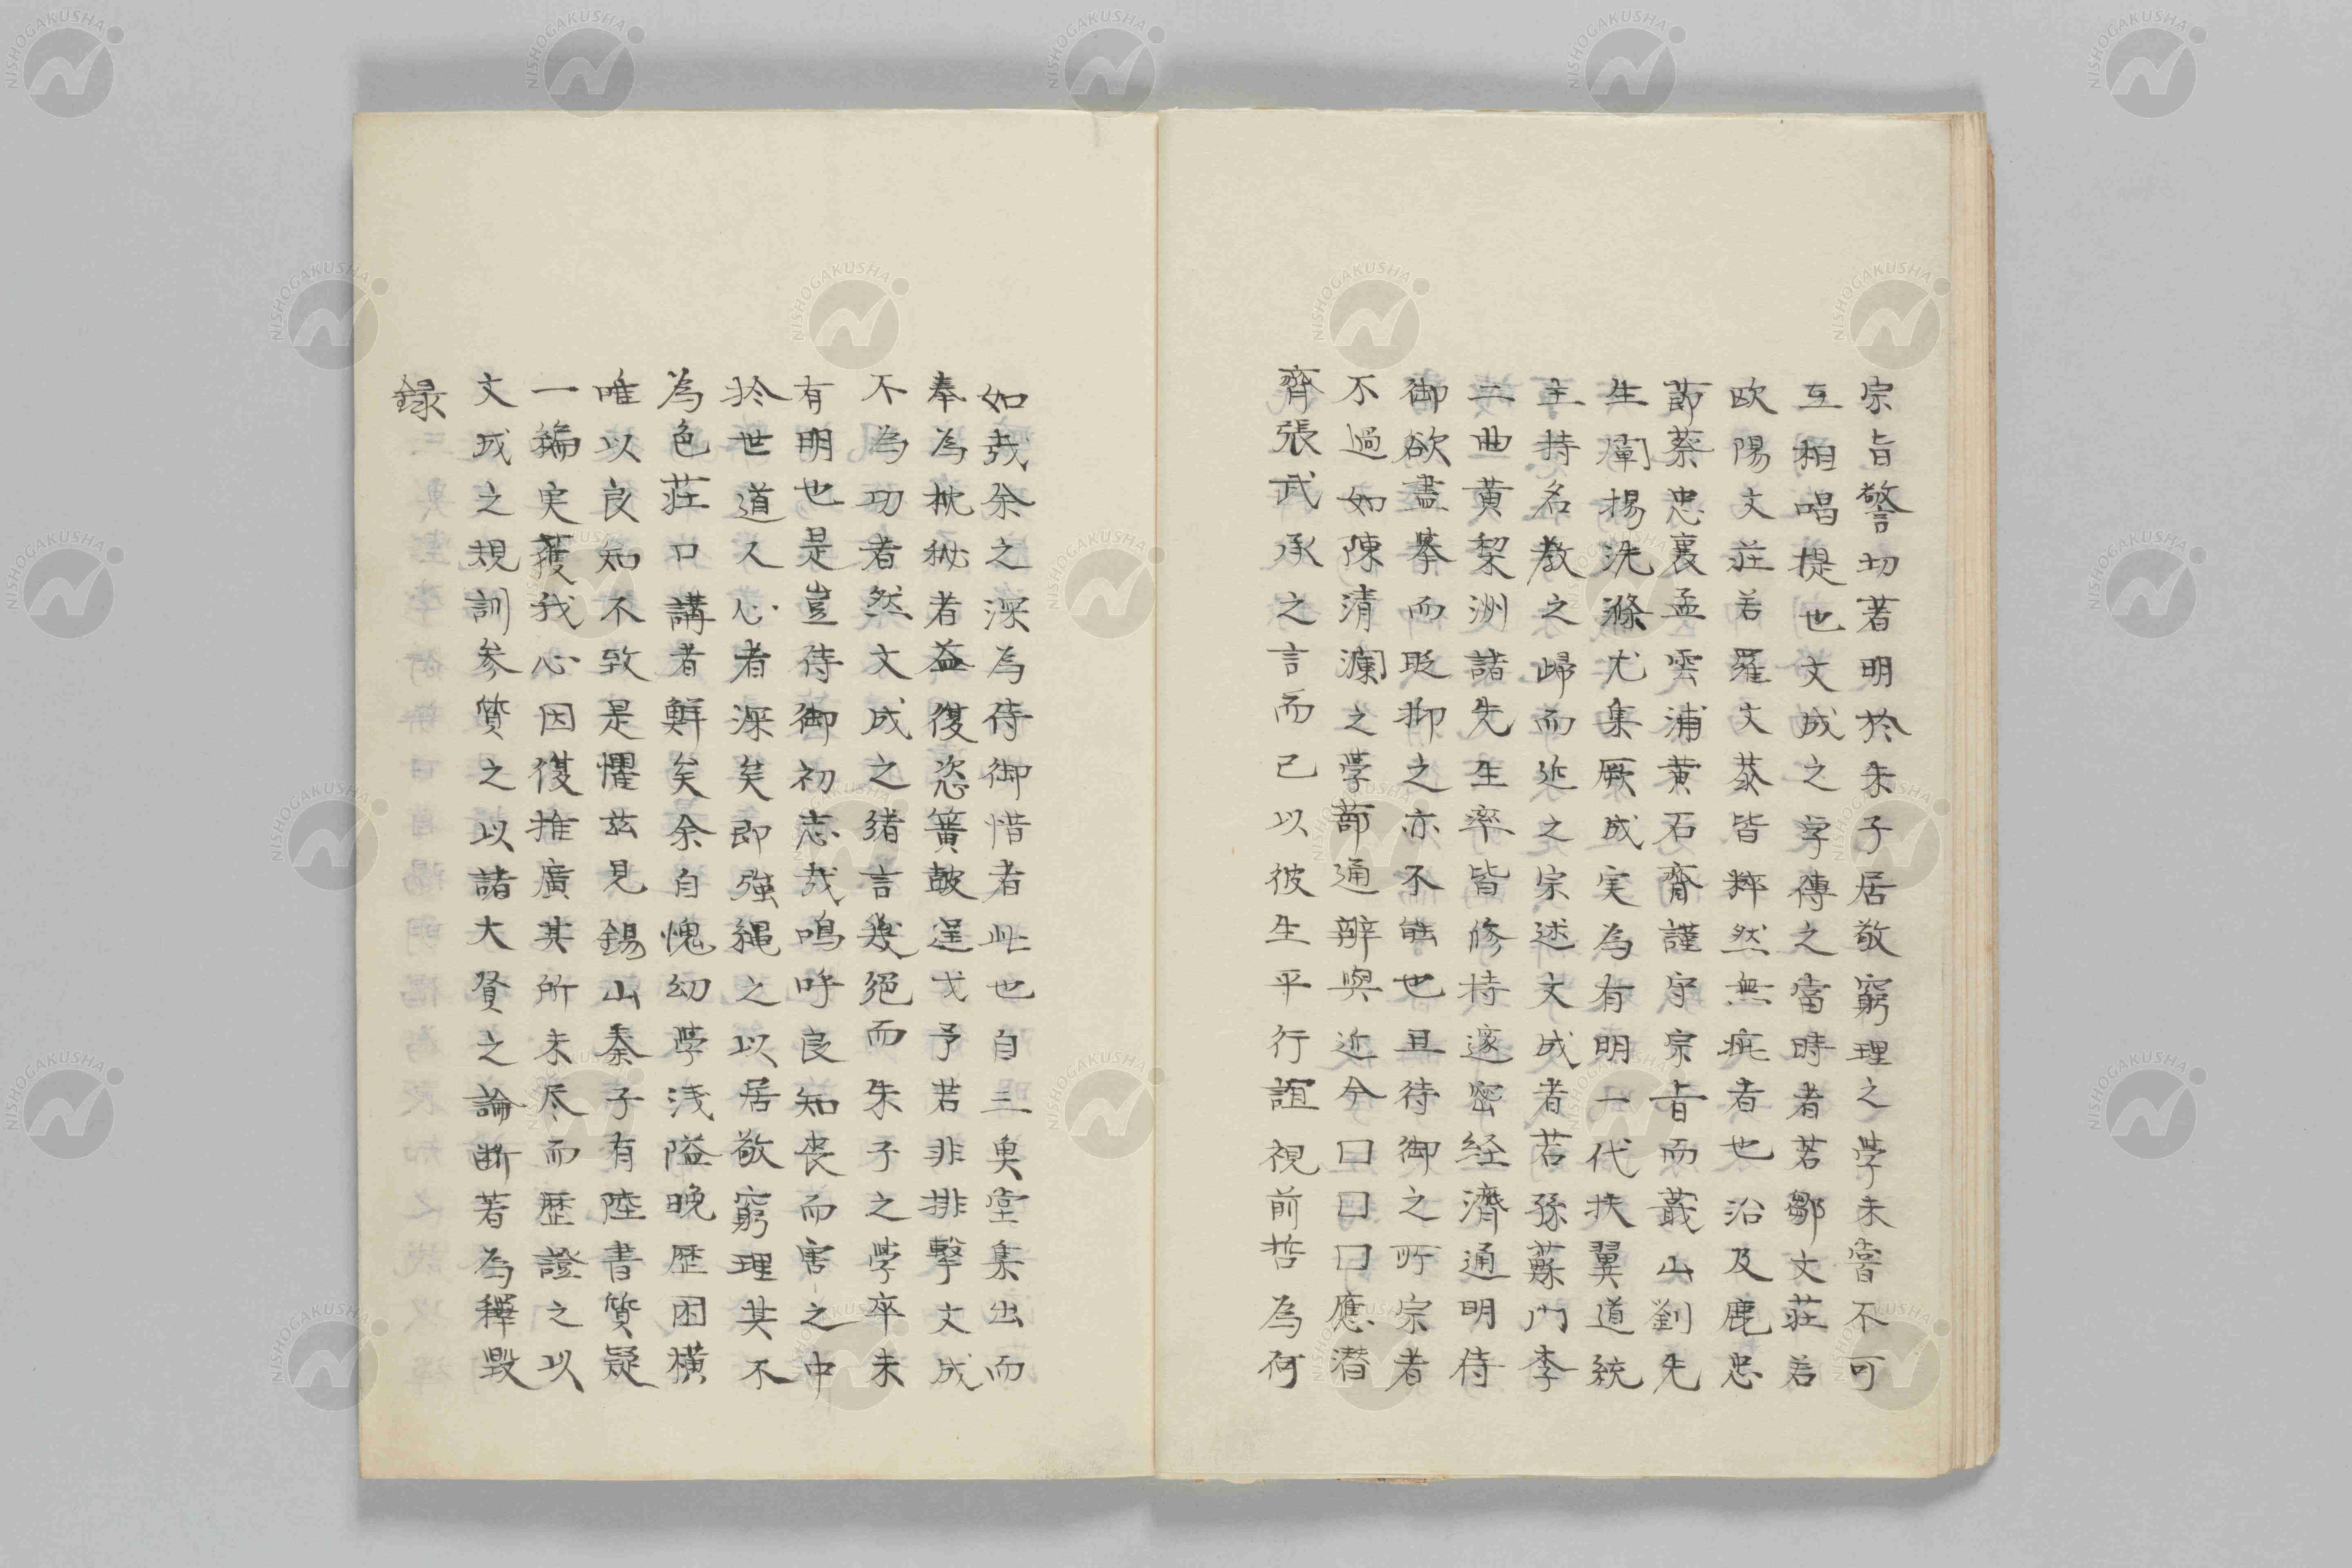 宗旨警切著明於朱子居敬窮理之学未嘗不可
互相唱提也文成之字傳之當時者若鄒文莊若
欧陽文莊若羅文恭皆粹然無疵者也沿及鹿忠
節蔡忠襄孟雲浦黄石齋謹守宗旨而蕺山劉先
生闡揚洗滌尤集厥成実為有明一代扶翼道統
主持名教之歸而近之宗述文成者若孫蘇門李
二曲黄梨洲諸先生率皆修持邃密経濟通明侍
御欲盡擧而貶抑之亦不能也且侍御之所宗者
不過如陳清瀾之学蔀通辨與近今曰曰曰應潜
齊張武承之言而已以彼生平行誼視前哲為何
如哉余之深為侍御惜者此也自三臭堂集出而
奉為枕秘者益復恣簧皷逞戈予若非排擊文成
不為功者然文成之緒言幾絕而朱子之学卒未
有明也是豈侍御初志哉鳴呼良知喪而害之中
於世道人心者深矣即強縄之以居敬窮理其不
為色莊口講者鮮矣余自愧幼学淺隘晚歴困横
唯以良知不致是懼玆見錫山秦子有陸書質疑
一編実獲我心因復推廣其所未尽而歴證之以
文成之規訓参質之以諸大賢之論断著為釋毀
録
NISHOGAKUSHA